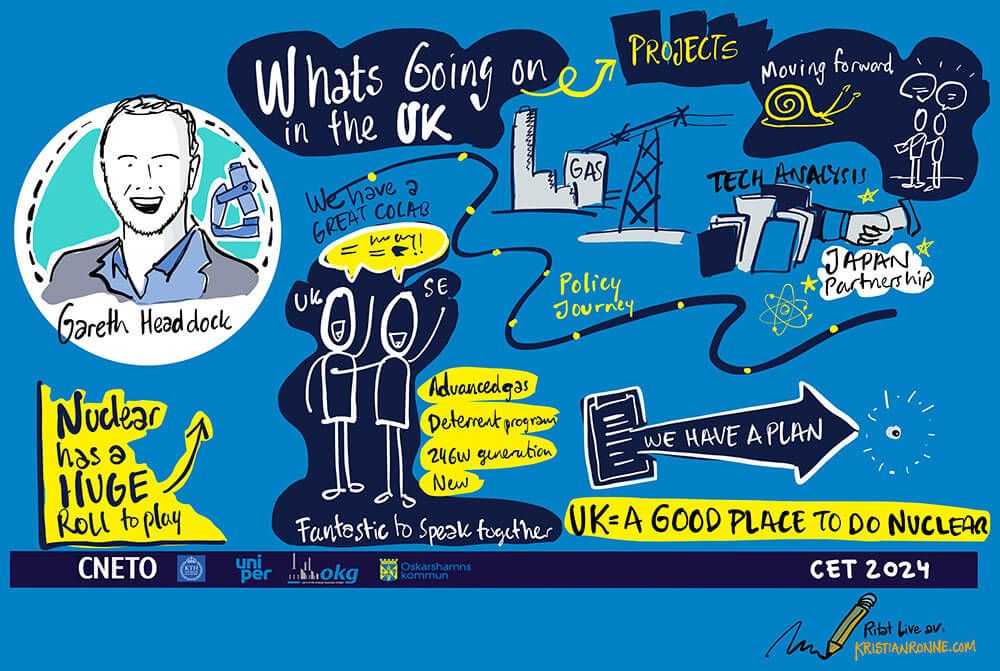 Whats Going on
in the UK
PROJECTS
Moving forward
GAS
TECH ANALYSIS
JAPAN
Partnership
We have a
GREAT COLAB
UK
SE
Policy
Journey
Gareth Headdock
Nuclear
has a
HUGE
Roll to play
Advanced gas
Deterrent program
24GW generation
New
Fantastic to speak together
WE HAVE A PLAN
UK = A GOOD PLACE TO DO NUCLEAR
CNETO
KTH
uni
per
okg
Oskarshamns
kommun
CET 2024
Ritat Live av:
KRISTIANRONNE.COM